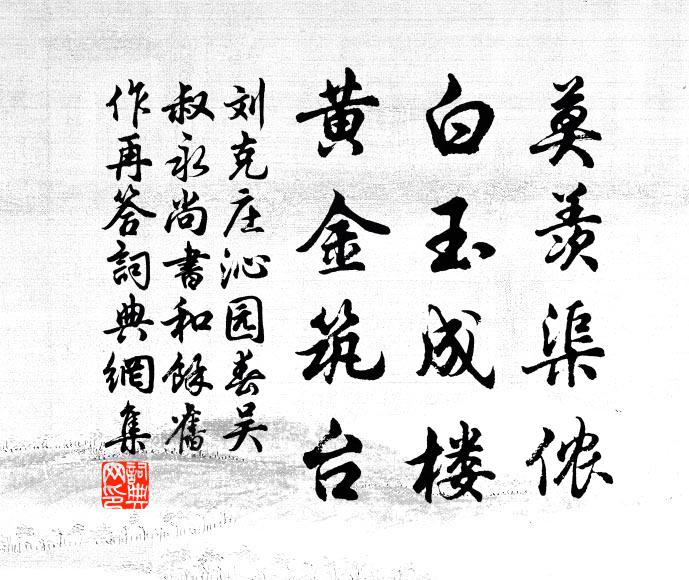 莫羡渠侬
白玉成楼
黄金筑台
刘克庄沁园春吴
叔永尚書和餘舊
作再答詞典網集
詞典
网印